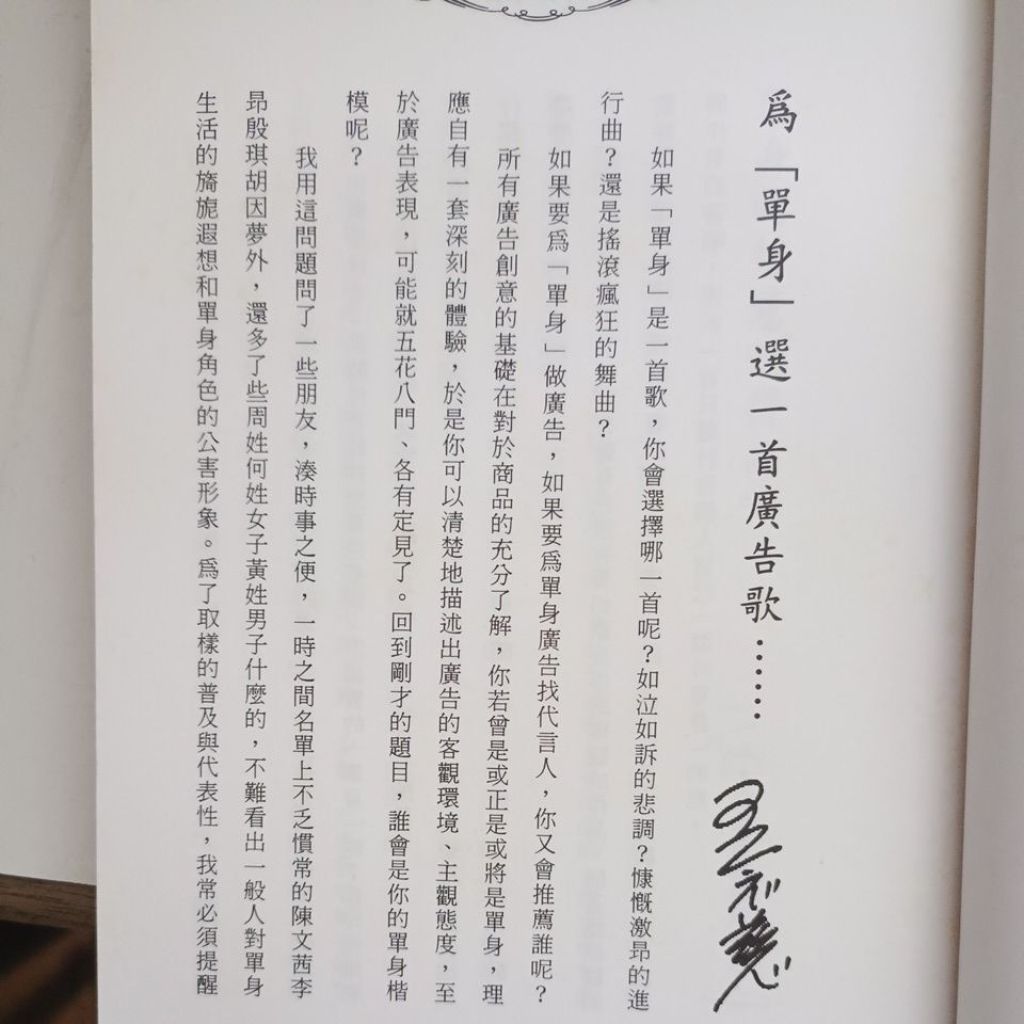 爲「單身」選一首廣告歌……
如果「單身」是一首歌，你會選擇哪一首呢？如泣如訴的悲調？慷慨激昂的進
行曲？還是搖滾瘋狂的舞曲？
如果要爲「單身」做廣告，如果要爲單身廣告找代言人，你又會推薦誰呢？
所有廣告創意的基礎在對於商品的充分了解，你若曾是或正是或將是單身，理
應自有一套深刻的體驗，於是你可以清楚地描述出廣告的客觀環境、主觀態度，至
於廣告表現，可能就五花八門、各有定見了。回到剛才的題目，誰會是你的單身楷
模呢？
我用這問題問了一些朋友，湊時事之便，一時之間名單上不乏慣常的陳文茜李
昂殷琪胡因夢外，還多了些周姓何姓女子黃姓男子什麼的，不難看出一般人對單身
生活的旖旎遐想和單身角色的公害形象。爲了取樣的普及與代表性，我常必須提醒